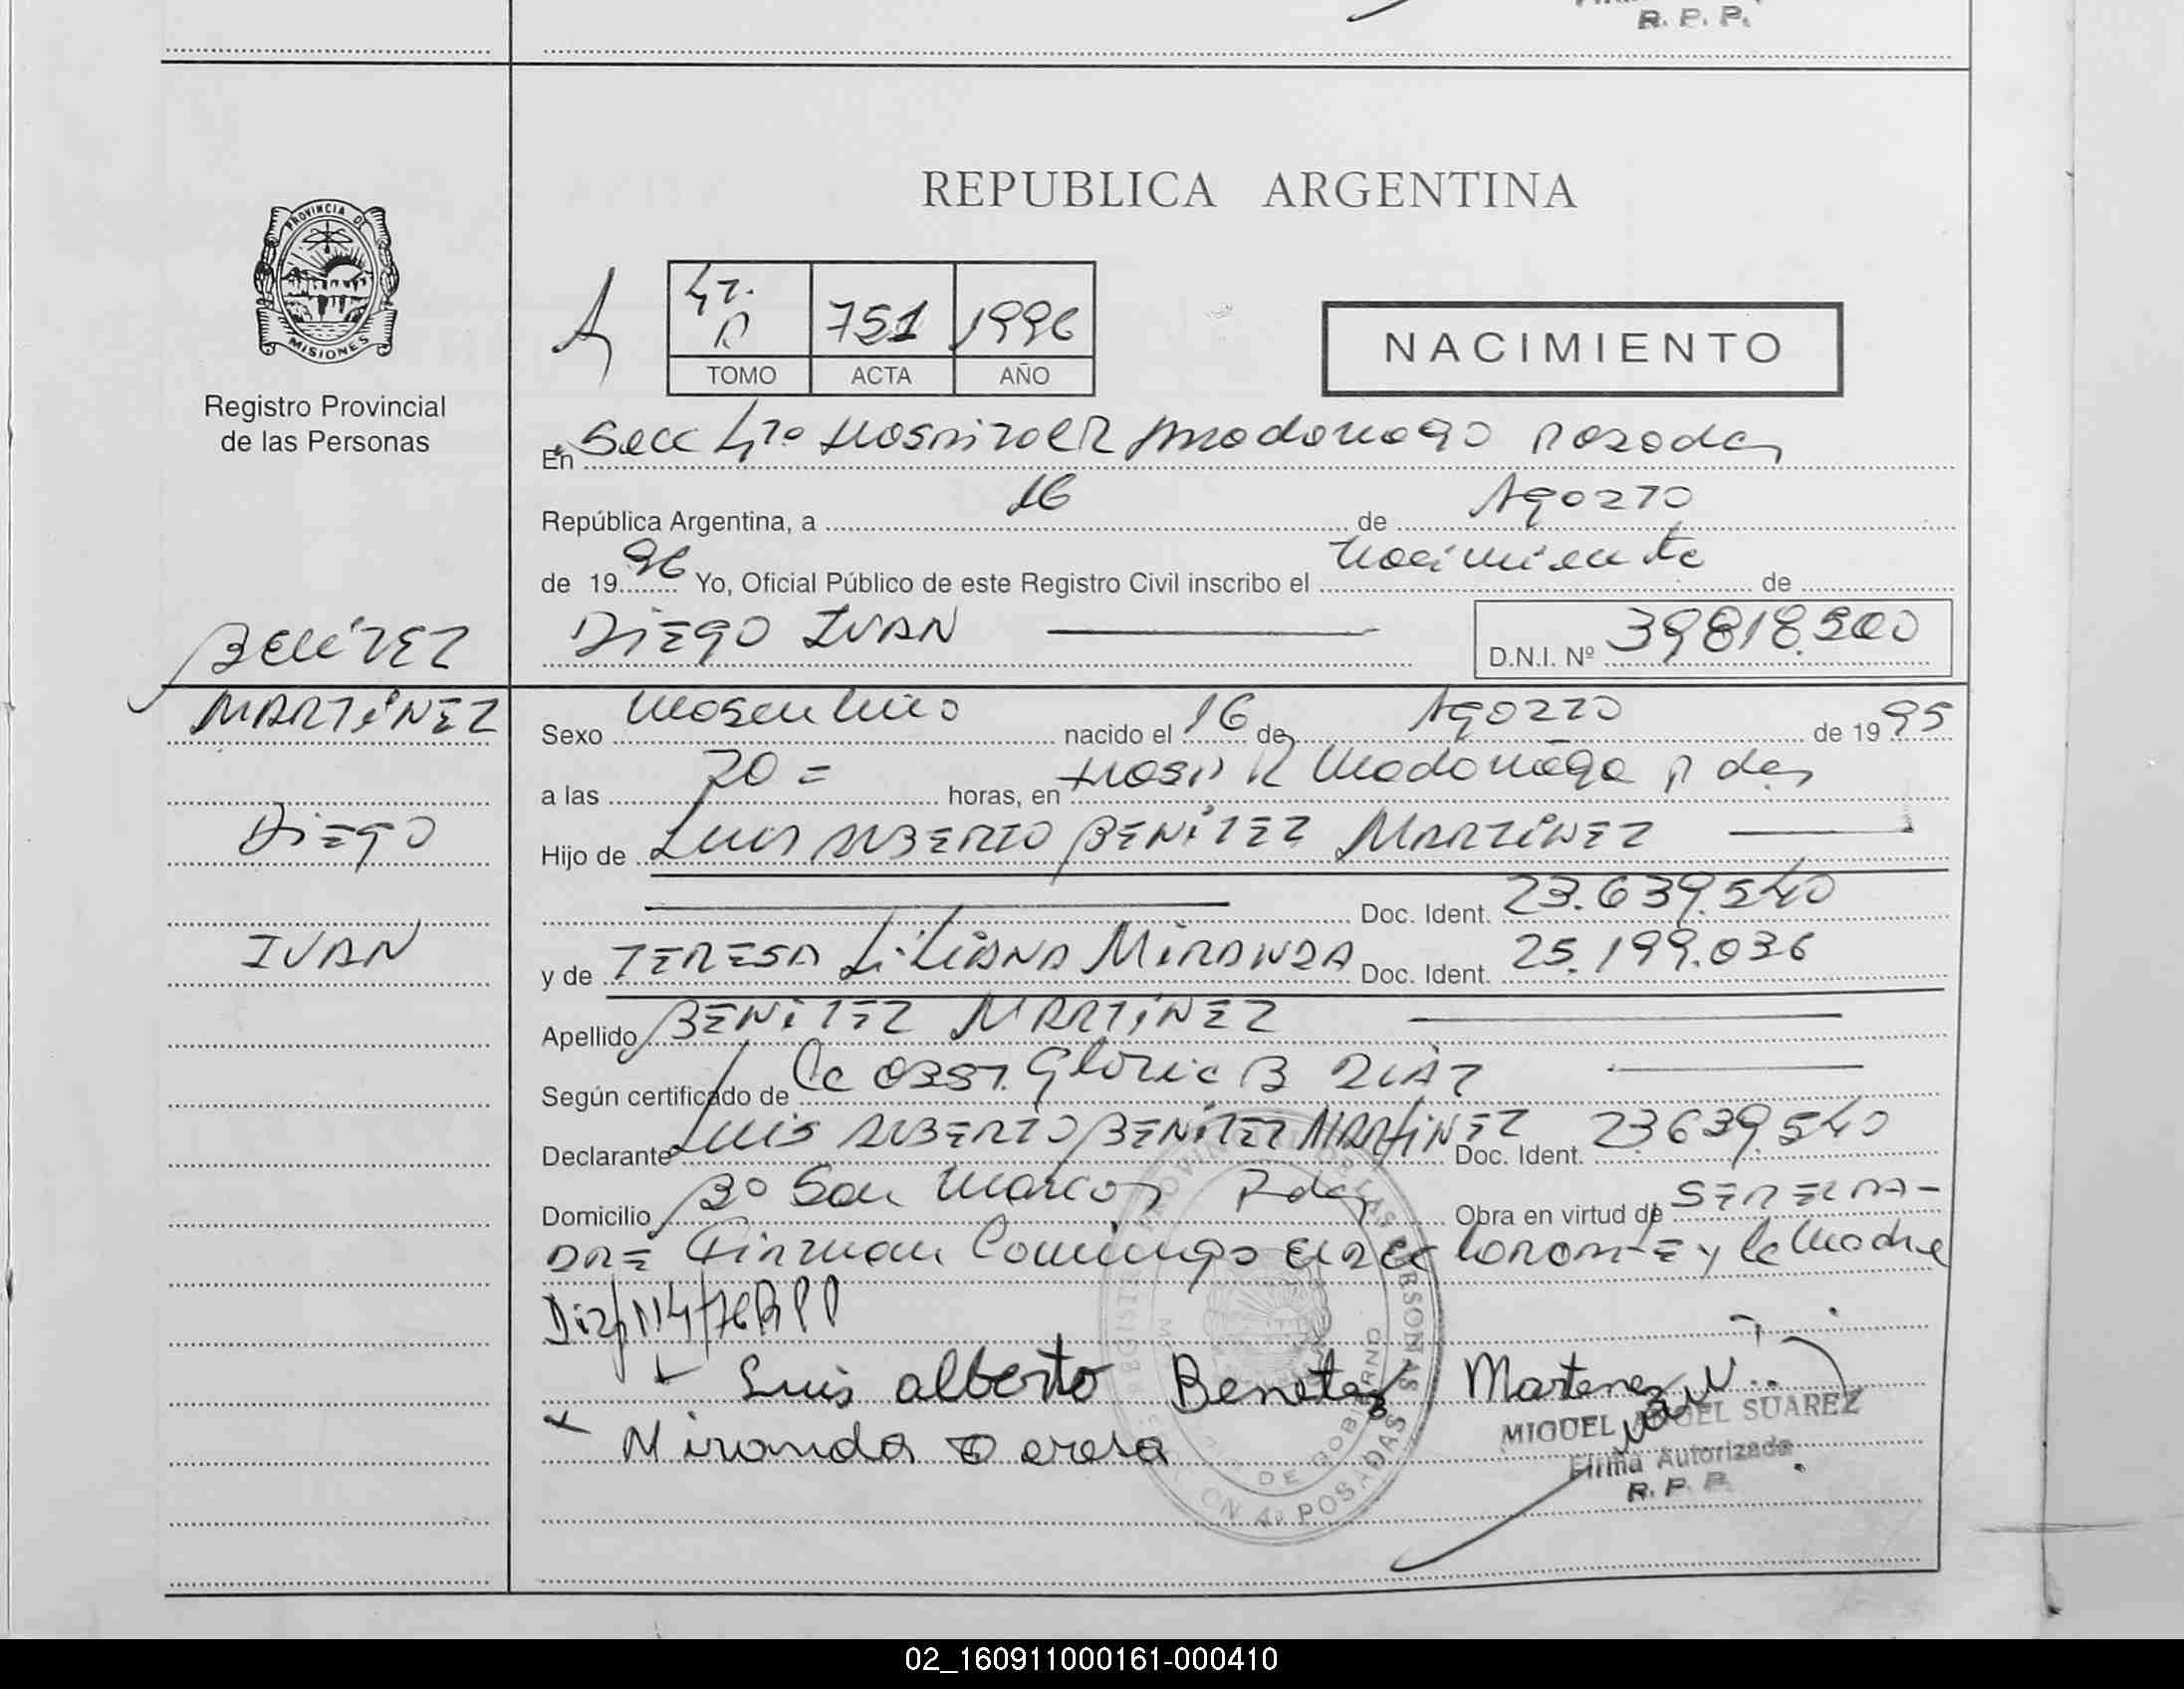 R. P. P.
REPUBLICA ARGENTINA
PROVINCIA DE
MISIONES
Registro Provincial
de las Personas
4to. 751 1996
TOMO ACTA AÑO
NACIMIENTO
En Secc 4ta Hospital R Madariaga Posadas
República Argentina, a 16 de Agosto
de 1996 Yo, Oficial Público de este Registro Civil inscribo el nacimiento de
DIEGO IVAN D.N.I. Nº 39818.900
BENÍTEZ
MARTÍNEZ
DIEGO
IVAN
Sexo Masculino nacido el 16 de Agosto de 1995
a las 20= horas, en Hosp R Madariaga Pdas
Hijo de LUIS ALBERTO BENÍTEZ MARTÍNEZ
Doc. Ident. 23.639.540
y de TERESA LILIANA MIRANDA Doc. Ident. 25.199.036
Apellido BENÍTEZ MARTÍNEZ
Según certificado de la Obst. Gloria B DIAZ
Declarante LUIS ALBERTO BENÍTEZ MARTÍNEZ Doc. Ident. 23.639.540
Domicilio Bº San Marcos Pdas Obra en virtud de SER EL PA-
DRE Firman Conmigo el declarante y la Madre
Luis alberto Benetez Martenez
Miranda Teresa
MIGUEL ANGEL SUAREZ
Firma Autorizada
R. P. P.
02_160911000161-000410